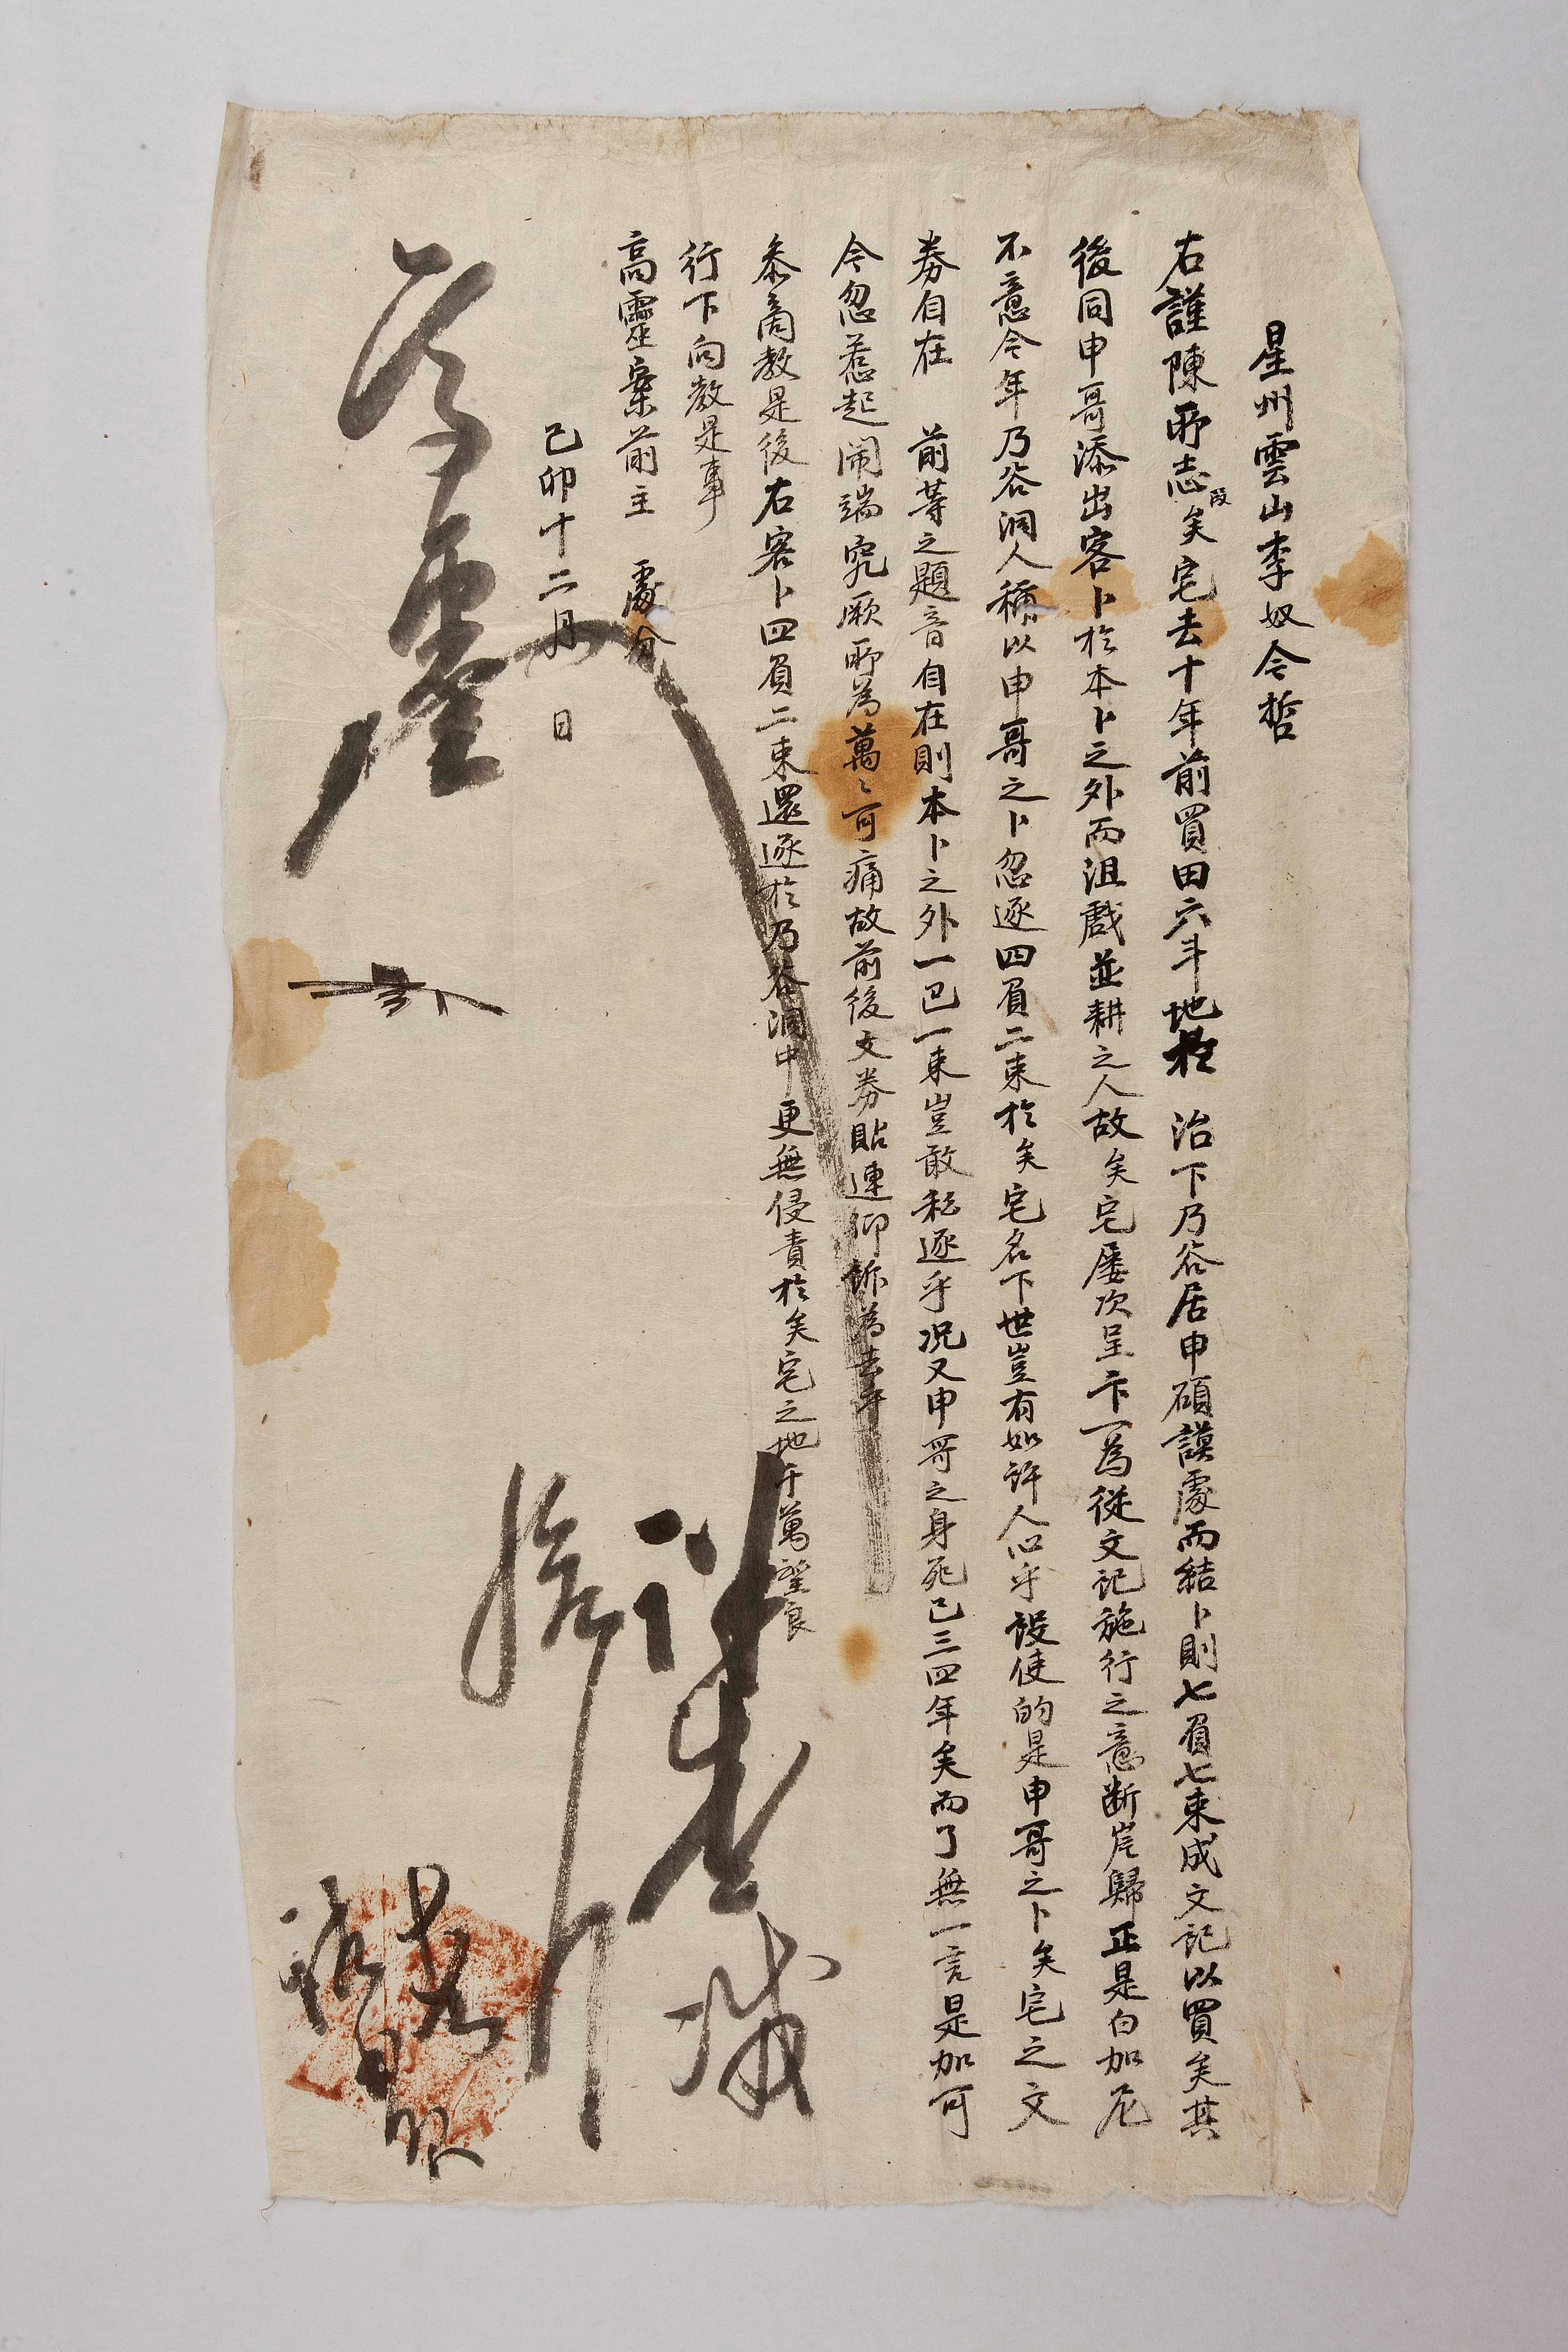 星州雲山李奴今哲
右謹陳所志段矣宅去十年前買田六斗地於 治下乃谷居申碩謨處而結卜則七負七束成文記以買矣其
後同申哥添出客卜於本卜之外而沮戱並耕之人故矣宅屢次呈卞一爲從文記施行之意断岸歸正是白加尼
不意今年乃谷洞人稱以申哥之卜忽逐四負二束於矣宅名下世豈有如許人心乎設使的是申哥之卜矣宅之文
券自在 前等之題音自在則本卜之外一巴一束豈敢私逐乎况又申哥之身死已三四年矣而了無一言是加可
今忽惹起鬧端究厥所爲萬〻可痛故前後文券貼連仰訴爲去乎
叅商教是後右客卜四負二束還逐於乃谷洞中更無侵責於矣宅之地千萬望良
行下向教是事
高靈案前主 處分
己卯十二月 日